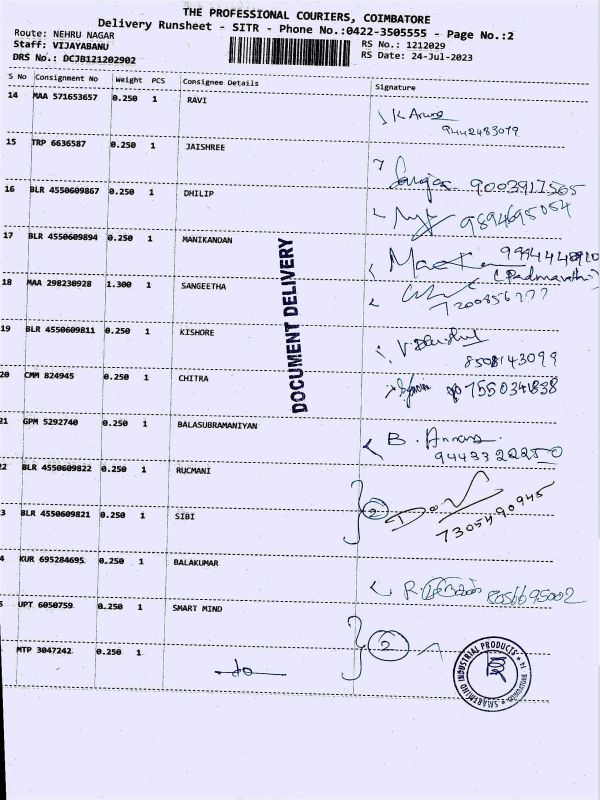 THE PROFESSIONAL COURIERS, COIMBATORE
Delivery Runsheet - SITR - Phone No.:0422-3505555 - Page No.:2
Route: NEHRU NAGAR
RS No.: 1212029
Staff: VIJAYABANU
RS Date: 24-Jul-2023
DRS No.: DCJB121202902
S No Consignment No Weight PCS Consignee Details Signature
14 MAA 571653657 0.250 1 RAVI
9442483079
15 TRP 6636587 0.250 1 JAISHREE
9003917565
16 BLR 4550609867 0.250 1 DHILIP
9894695054
17 BLR 4550609894 0.250 1 MANIKANDAN
9994448910
(Padmavathi)
18 MAA 298230928 1.300 1 SANGEETHA
7200856277
19 BLR 4550609811 0.250 1 KISHORE
8508143099
20 CMM 824945 0.250 1 CHITRA
7550341838
21 GPM 5292740 0.250 1 BALASUBRAMANIYAN
B.
9443322250
2 BLR 4550609822 0.250 1 RUCMANI
2
7305490945
3 BLR 4550609821 0.250 1 SIBI
4 KUR 695284695 0.250 1 BALAKUMAR
R. 8056695002
5 UPT 6050759 0.250 1 SMART MIND
2
MTP 3047242 0.250 1
-do-
DOCUMENT DELIVERY
SMARTMIND INDUSTRIAL PRODUCTS
COIMBATORE - 14